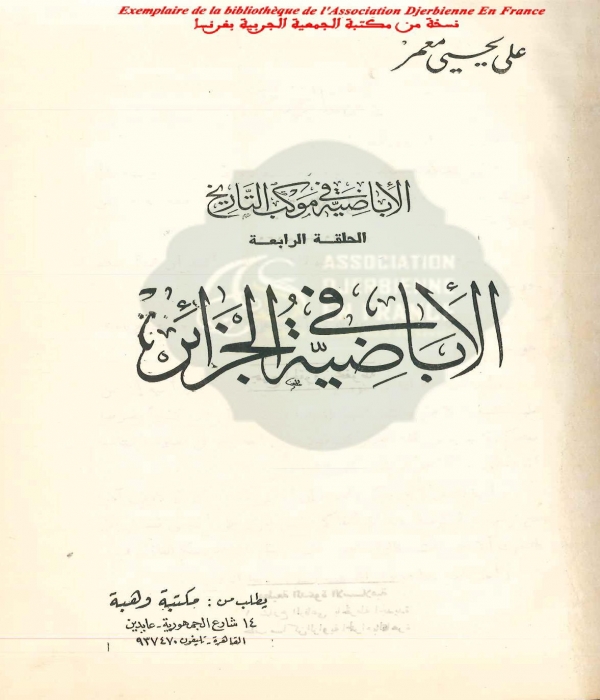 Exemplaire de la bibliothèque de l'Association Djerbienne En France
نسخة من مكتبة الجمعية الجربية بفرنسا
على يحيى معمر
الأباضية في موكب التاريخ
الحلقة الرابعة
ASSOCIATION
DJERBIENNE
الأباضية في الجزائر
يطلب من: مكتبة وهبة
١٤ شارع الجمهورية - عابدين
القاهرة - تليفون ٩٣٧٤٧٠